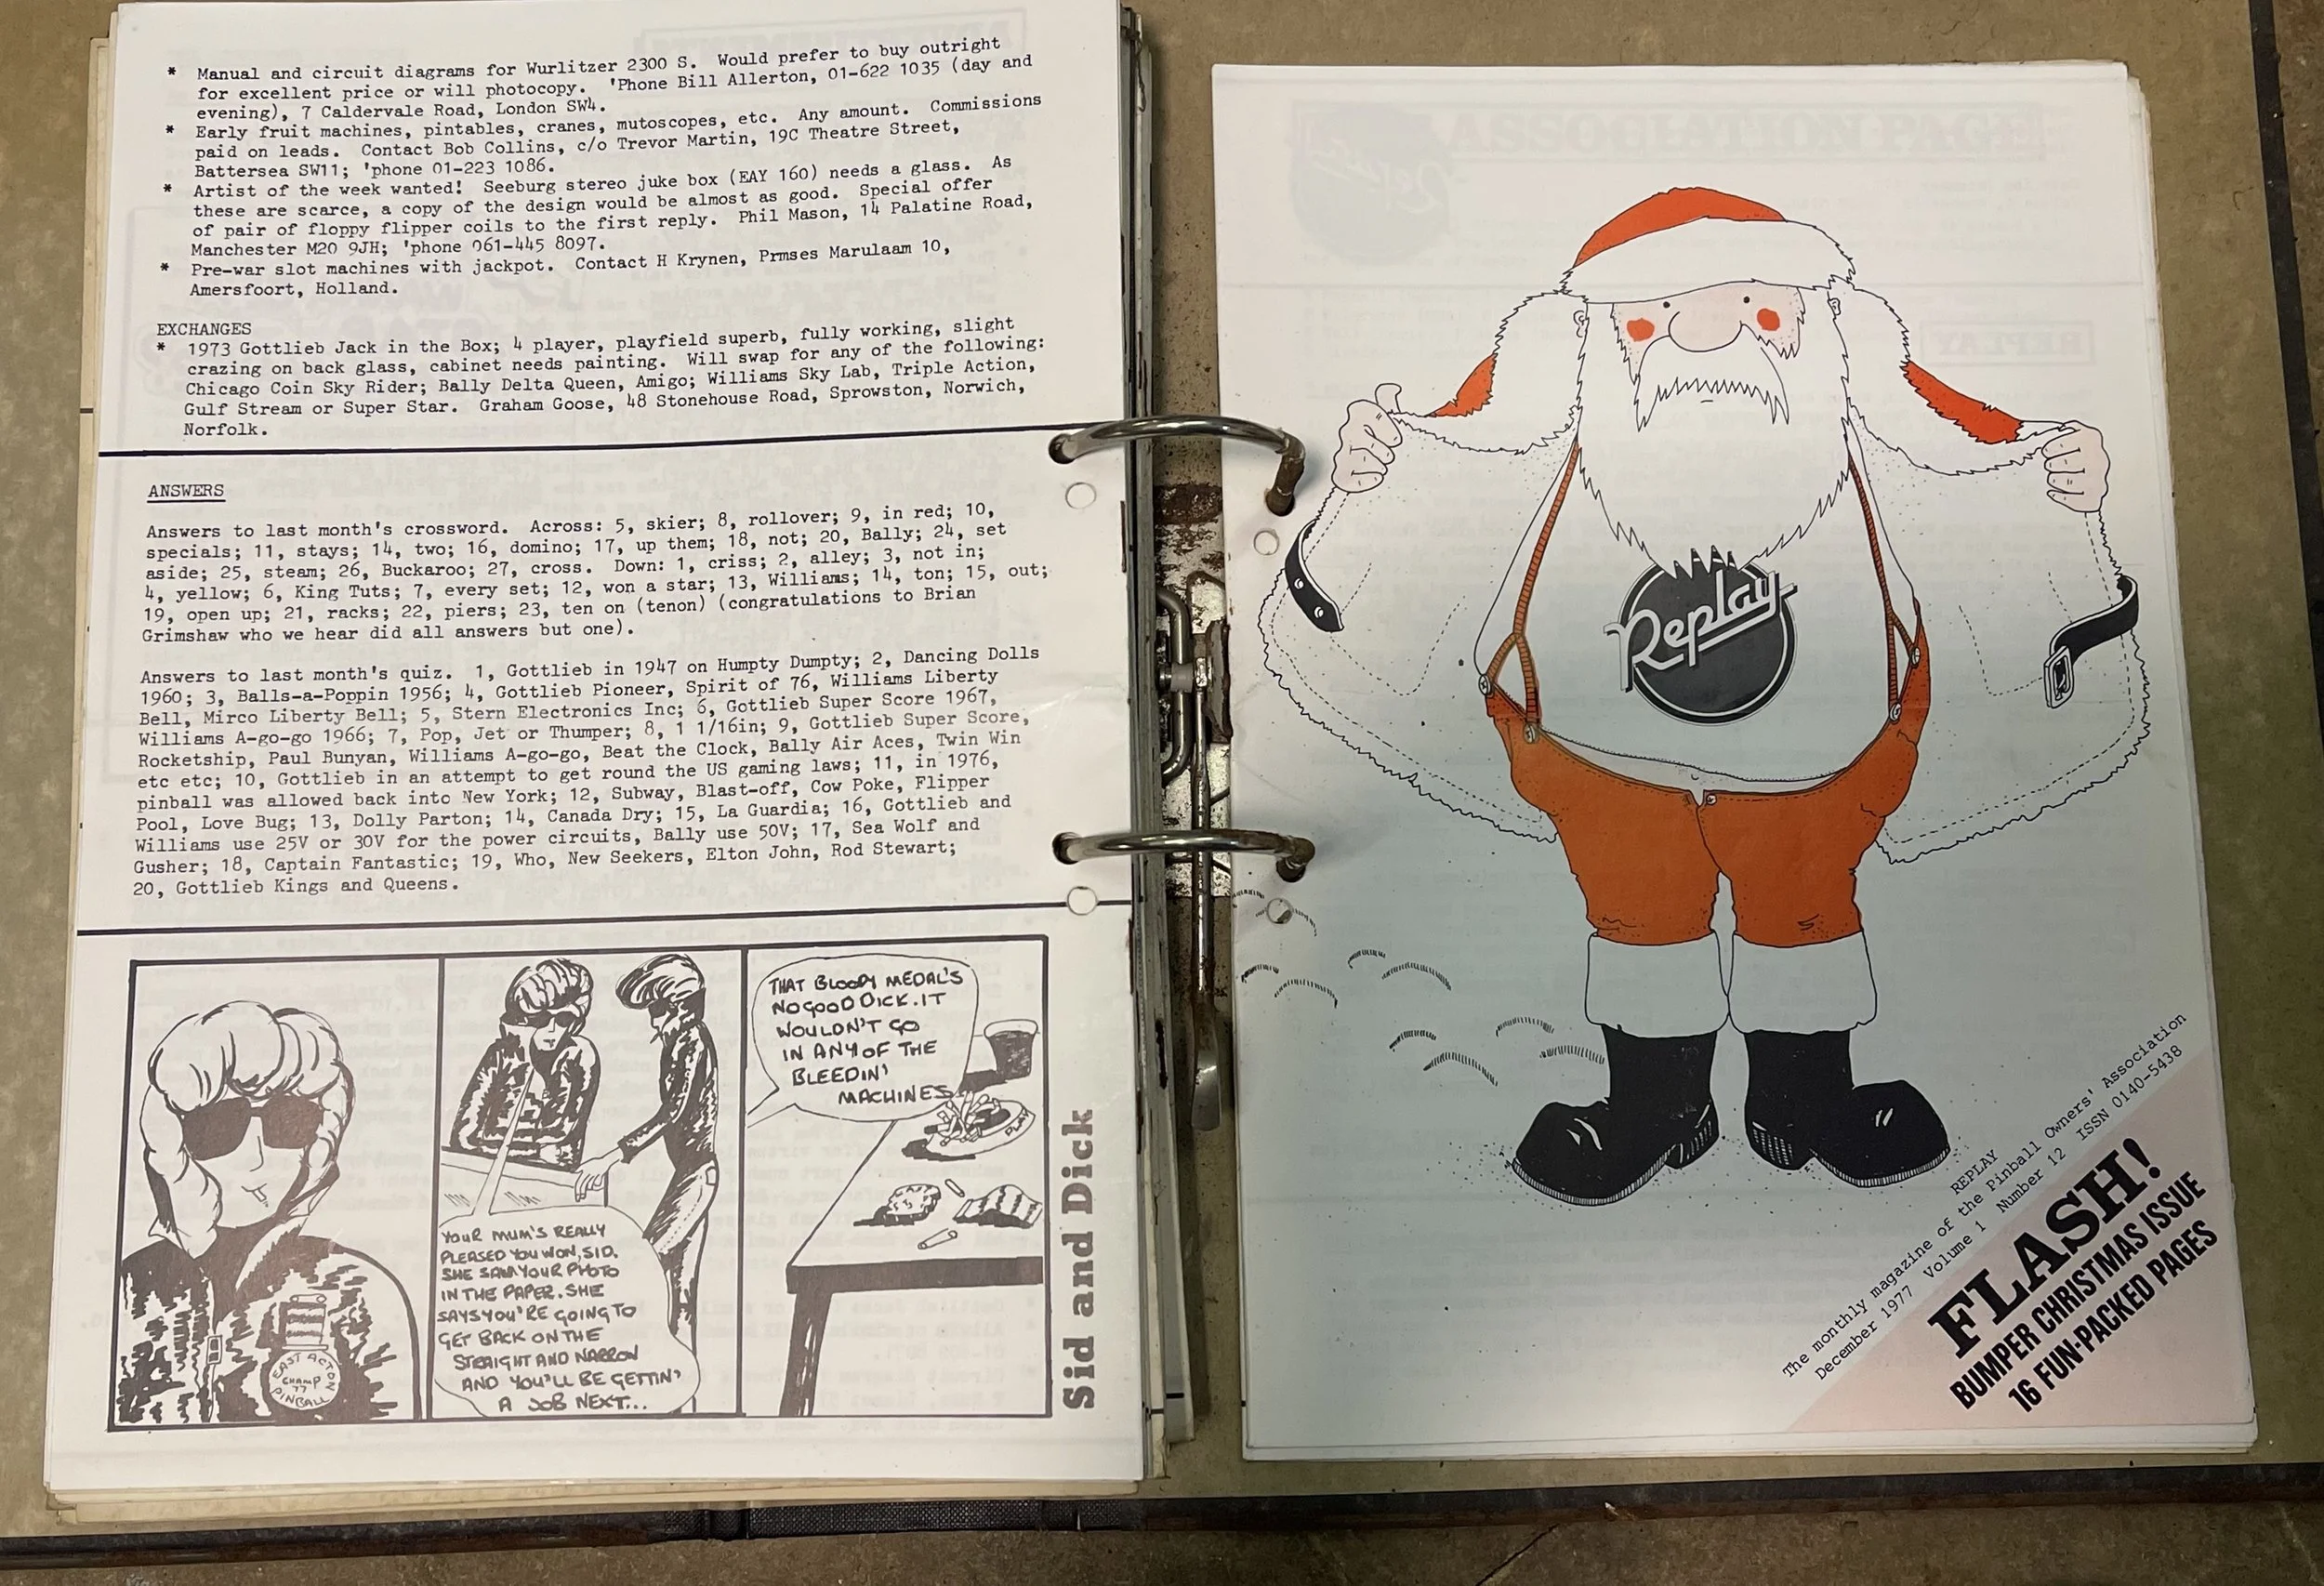 * Manual and circuit diagrams for Wurlitzer 2300 S. Would prefer to buy outright
for excellent price or will photocopy. 'Phone Bill Allerton, 01-622 1035 (day and
evening), 7 Caldervale Road, London SW4.
* Early fruit machines, pintables, cranes, mutoscopes, etc. Any amount. Commissions
paid on leads. Contact Bob Collins, c/o Trevor Martin, 19C Theatre Street,
Battersea SW11; 'phone 01-223 1086.
* Artist of the week wanted! Seeburg stereo juke box (EAY 160) needs a glass. As
these are scarce, a copy of the design would be almost as good. Special offer
of pair of floppy flipper coils to the first reply. Phil Mason, 14 Palatine Road,
Manchester M20 9JH; 'phone 061-445 8097.
* Pre-war slot machines with jackpot. Contact H Krynen, Prmses Marulaam 10,
Amersfoort, Holland.
EXCHANGES
* 1973 Gottlieb Jack in the Box; 4 player, playfield superb, fully working, slight
crazing on back glass, cabinet needs painting. Will swap for any of the following:
Chicago Coin Sky Rider; Bally Delta Queen, Amigo; Williams Sky Lab, Triple Action,
Gulf Stream or Super Star. Graham Goose, 48 Stonehouse Road, Sprowston, Norwich,
Norfolk.
ANSWERS
Answers to last month's crossword. Across: 5, skier; 8, rollover; 9, in red; 10,
specials; 11, stays; 14, two; 16, domino; 17, up them; 18, not; 20, Bally; 24, set
aside; 25, steam; 26, Buckaroo; 27, cross. Down: 1, criss; 2, alley; 3, not in;
4, yellow; 6, King Tuts; 7, every set; 12, won a star; 13, Williams; 14, ton; 15, out;
19, open up; 21, racks; 22, piers; 23, ten on (tenon) (congratulations to Brian
Grimshaw who we hear did all answers but one).
Answers to last month's quiz. 1, Gottlieb in 1947 on Humpty Dumpty; 2, Dancing Dolls
1960; 3, Balls-a-Poppin 1956; 4, Gottlieb Pioneer, Spirit of 76, Williams Liberty
Bell, Mirco Liberty Bell; 5, Stern Electronics Inc; 6, Gottlieb Super Score 1967,
Williams A-go-go 1966; 7, Pop, Jet or Thumper; 8, 1 1/16in; 9, Gottlieb Super Score,
Rocketship, Paul Bunyan, Williams A-go-go, Beat the Clock, Bally Air Aces, Twin Win
etc etc; 10, Gottlieb in an attempt to get round the US gaming laws; 11, in 1976,
pinball was allowed back into New York; 12, Subway, Blast-off, Cow Poke, Flipper
Pool, Love Bug; 13, Dolly Parton; 14, Canada Dry; 15, La Guardia; 16, Gottlieb and
Williams use 25V or 30V for the power circuits, Bally use 50V; 17, Sea Wolf and
Gusher; 18, Captain Fantastic; 19, Who, New Seekers, Elton John, Rod Stewart;
20, Gottlieb Kings and Queens.
EAST ACTON
CHAMP
77
PINBALL
YOUR MUM'S REALLY
PLEASED YOU WON, SID.
SHE SAW YOUR PHOTO
IN THE PAPER. SHE
SAYS YOU'RE GOING TO
GET BACK ON THE
STRAIGHT AND NARROW
AND YOU'LL BE GETTIN'
A JOB NEXT...
THAT BLOODY MEDAL'S
NO GOOD DICK. IT
WOULDN'T GO
IN ANY OF THE
BLEEDIN'
MACHINES.
PLAY
Sid and Dick
Replay
REPLAY
The monthly magazine of the Pinball Owners' Association
December 1977 Volume 1 Number 12 ISSN 0140-5438
FLASH!
BUMPER CHRISTMAS ISSUE
16 FUN-PACKED PAGES